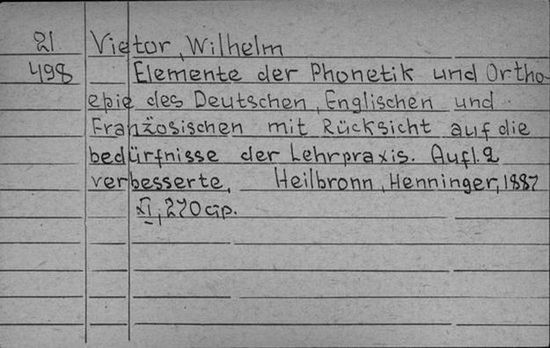 21 Vietor, Wilhelm
498 Elemente der Phonetik und Ortho-
epie des Deutschen, Englischen und
Französischen mit Rücksicht auf die
bedürfnisse der Lehrpraxis. Aufl. 2
verbesserte, Heilbronn, Henninger, 1887
XI, 270 стр.